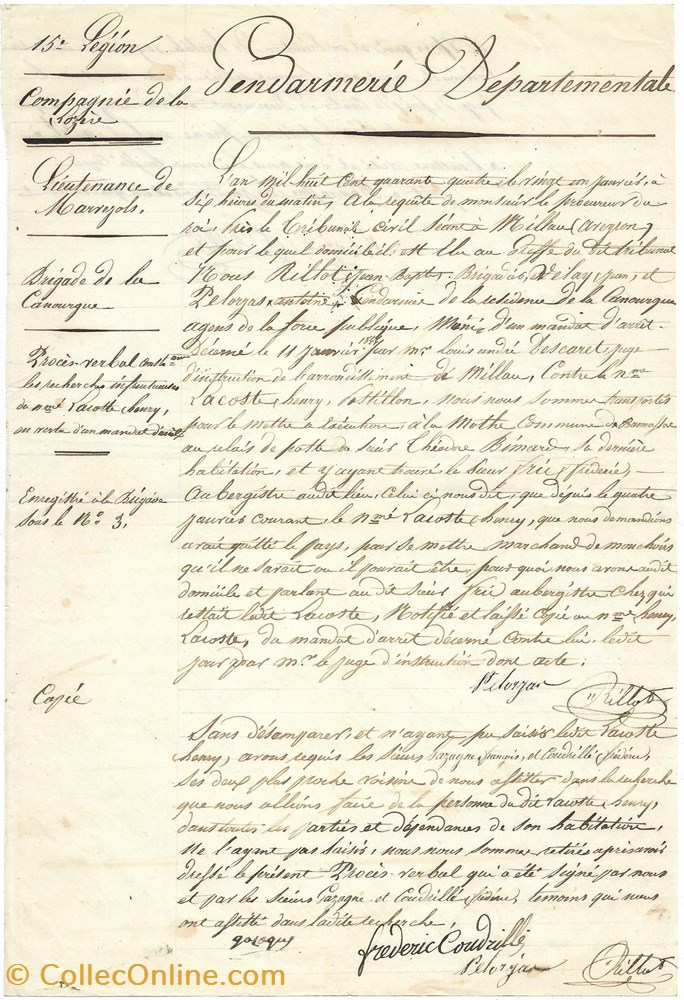 15e Légion
Gendarmerie Départementale
Compagnie de la
Lozère
Lieutenance de
Marvejols.
Brigade de la
Canourgue
Procès-verbal
les recherches infructueuses
du nmé Lacoste henry,
en vertu d'un mandat d'arrêt
Enregistré à la Brigade
sous le No 3,
L'an mil huit cent quarante quatre, le vingt janvier, à
six heures du matin, à la requête de monsieur le procureur du
roi, près le Tribunal civil séant à Millau (aveyron)
et pour lequel domicile est Elu au Greffe du dit tribunal
Nous Rillot, jean Baptte Brigadier, Veray, jean, et
Pelorgas, antoine Gendarmes de la résidence de la Canourgue
agens de la force publique, Munis d'un mandat d'arrêt
Décerné le 11 janvier par mr louis andré Descaret, juge
d'instruction de l'arrondissement de Millau, Contre le nmé
Lacoste, henry, Postillon, nous nous somme transportés
pour le mettre a Exécution, à la Mothe Commune de Banassac
au relais de poste du sieur Théodore Bimard, sa dernière
habitation, et y ayant trouvé le sieur fric (fréderic)
Aubergiste audit lieu, Celui ci nous dit, que depuis le quatre
janvier courant le nmé Lacoste (henry, que nous demandions
avait quitté le pays, pour se mettre marchand de mouchoirs
qu'il ne savait ou il pourait être; pourquoi nous avons audit
domicile et parlant au dit sieur fric aubergiste chez qui
restait ledit Lacoste, Notifié et laissé copie au nmé henry,
Lacoste, du mandat d'arrêt décerné contre lui ledit
jour par mr le juge d'instruction dont acte.
Pelorgas
Rillot
Copée
Sans désamparer, et n'ayant pu saisir ledit Lacoste
henry, avons requis les sieurs Gazagne françois, et Coudrillé (fréderic,
ses deux plus proche voisins de nous assister dans la recherche
que nous allions faire de la personne du dit Lacoste, henry,
dans toutes les parties et dépendances de son habitation,
Ne l'ayant pas saisis, nous nous somme retirés après avoir
dressé le présent Procès-verbal qui a été signé par nous
et par les sieurs Gazagne et Coudrillé (fréderic, temoins qui nous
ont assisté dans ladite recherche,
frédéric Coudrillé
Pelorgas
Rillot
© CollecOnline.com